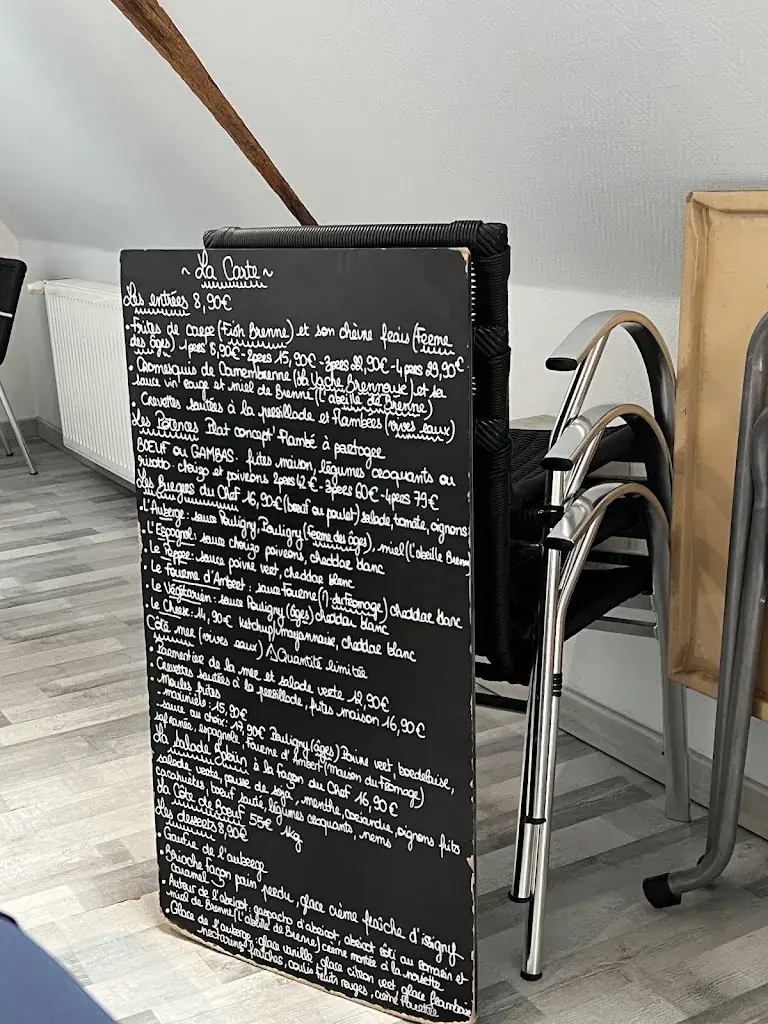 ~ La Carte ~
Les entrées 8,90€
• Frites de carpe (Fish Brenne) et son chèvre frais (Ferme
des âges) 1pers 8,90€ - 2pers 15,90€ - 3pers 22,90€ - 4pers 29,90€
• Cromesquis de Camembrenne (La Vache Brennouse) et sa
sauce vin rouge et miel de Brenne (L'abeille de Brenne)
• Crevettes sautées à la persillade et flambées (vives eaux)
Les Potences Plat concept' Flambé à partager
BOEUF ou GAMBAS: frites maison, légumes croquants ou
risotto chorizo et poivrons 2pers 42€ - 3pers 60€ - 4pers 79€
Les Burgers du Chef 16,90€ (bœuf ou poulet) salade, tomate, oignons
• L'Auberge: sauce Pouligny, Pouligny (Ferme des âges), miel (L'abeille Brenne
• L'Espagnol: sauce chorizo poivrons, cheddar blanc
• Le Poppers: sauce poivre vert, cheddar blanc
• Le Fourme d'Ambert: sauce Fourme (M du Fromage) cheddar blanc
• Le Végétarien: sauce Pouligny (âges) cheddar blanc
• Le Chees: 14,90€ ketchup/mayonnaise, cheddar blanc
Côté mer (vives eaux) ⚠ Quantité limitée
• Parmentier de la mer et salade verte 12,90€
• Crevettes sautées à la persillade, frites maison 16,90€
• Moules frites
marinière: 15,90€
sauce au choix: 17,90€ Pouligny (âges) Poivre vert, bordelaise,
safranée, espagnole, Fourme d'Ambert (Maison du Fromage)
La salade à la façon du Chef 16,90€
salade verte, pousse de soja, menthe, coriandre, oignons frits
cacahuètes, bœuf sauté, légumes croquants, nems
La Côte de Boeuf 55€ 1kg
Les desserts 8,90€
• Gaufre de l'auberge
• Brioche façon pain perdu, glace crème fraîche d'isigny
caramel
• Autour de l'abricot: gaspacho d'abricot, abricot rôti au romarin et
miel de Brenne (L'abeille de Brenne) crème montée à la noisette
• Glace de l'auberge: glace vanille, glace citron vert, glace framboise
nectarines fraîches, coulis fruits rouges, crème fouettée